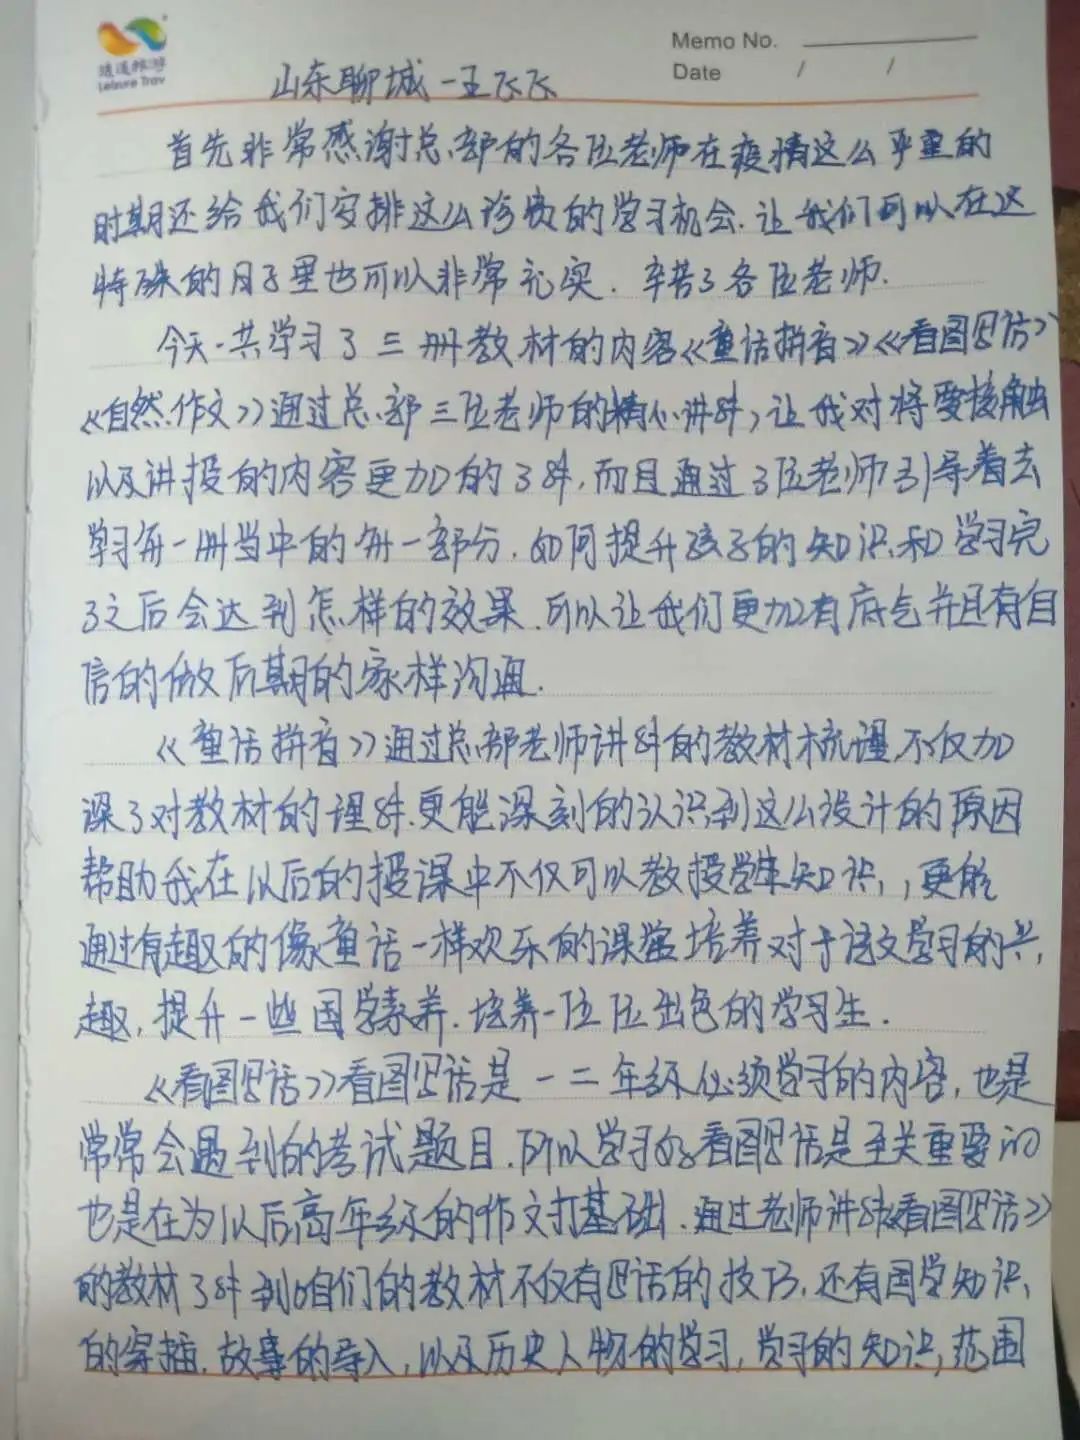 逍遥旅游
Leisure Trav
Memo No.
Date / /
山东聊城-王飞飞
首先非常感谢总部的各位老师在疫情这么严重的
时期还给我们安排这么珍贵的学习机会.让我们可以在这
特殊的日子里也可以非常充实.辛苦了各位老师.
今天一共学习了三册教材的内容《童话拼音》《看图写话》
《自然作文》通过总部三位老师的精心讲解,让我对将要接触
以及讲授的内容更加的了解,而且通过3位老师引导着去
学习每一册当中的每一部分.如何提升孩子的知识和学习完
了之后会达到怎样的效果.可以让我们更加有底气并且有自
信的做后期的家校沟通.
《童话拼音》通过总部老师讲解的教材梳理,不仅加
深了对教材的理解.更能深刻的认识到这么设计的原因
帮助我在以后的授课中不仅可以教授学生知识,,更能
通过有趣的像童话一样欢乐的课堂培养对于语文学习的兴,
趣,提升一些国学素养.培养一位位出色的学习生.
《看图写话》看图写话是一二年级必须学习的内容,也是
常常会遇到的考试题目.所以学习好看图写话是至关重要的
也是在为以后高年级的作文打基础.通过老师讲解《看图写话》
的教材了解到咱们的教材不仅有写话的技巧,还有国学知识,
的穿插.故事的导入,以及历史人物的学习,学习的知识,范围